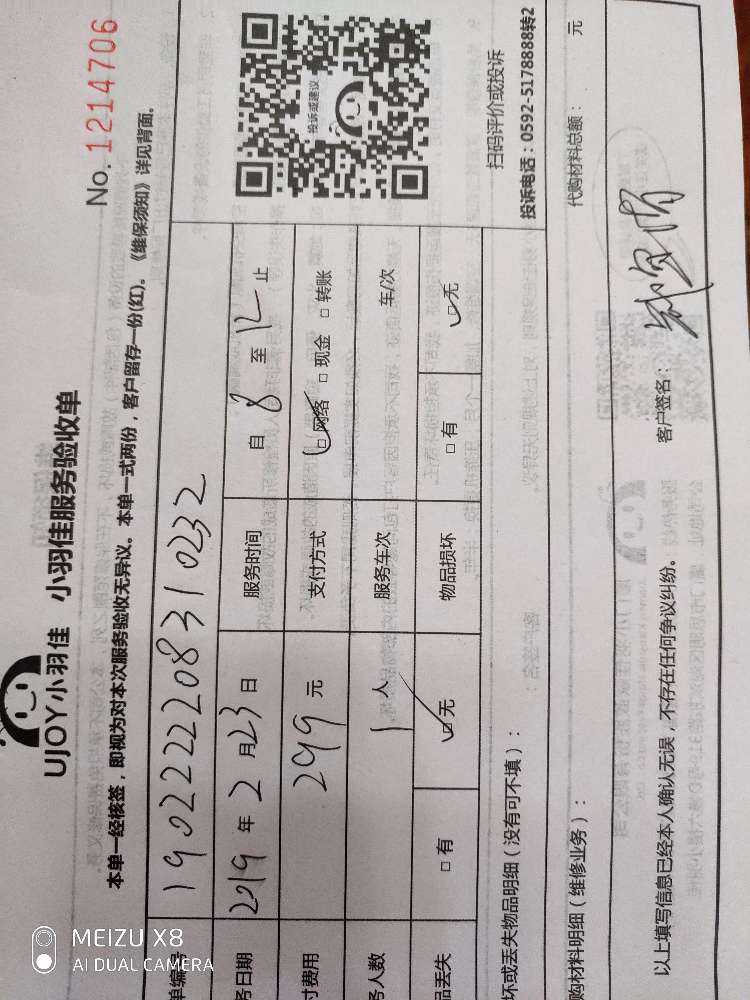 UJOY小羽佳 小羽佳服务验收单
No. 1214706
本单一经核签，即视为对本次服务验收无异议。本单一式两份，客户留存一份(红)。《维保须知》详见背面。
单编号 1902222208310232
务日期 2019 年 2 月 23 日 服务时间 自 8 至 12 止
付费用 299 元 支付方式 网络 现金 转账
务人数 1 人 服务车次 车/次
品丢失 有 无 物品损坏 有 无
投诉或建议
扫码评价或投诉
投诉电话：0592-5178888转2
坏或丢失物品明细（没有可不填）：
购材料明细（维修业务）： 代购材料总额： 元
以上填写信息已经本人确认无误，不存在任何争议纠纷。 客户签名：
MEIZU X8
AI DUAL CAMERA